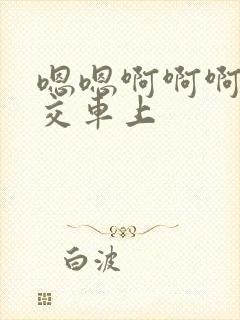 嗯嗯啊啊啊
交车上
白波